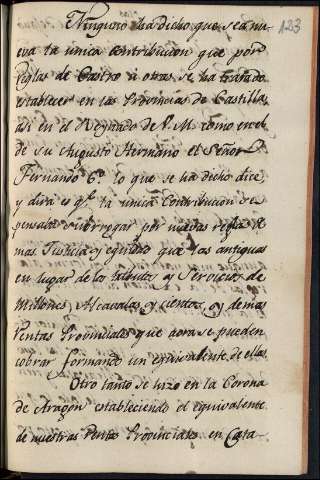 123
Ninguno ha dicho que sea nu-
eva la unica contribucion que por
reglas de Castro u otras se ha tratado
establecer en las Provincias de Castilla,
asi en el Reynado de V. M. como en el
de su Augusto Hermano el Señor Dn
Fernando 6º lo que se ha dicho dice,
y dirá es qe la unica Contribucion se
pensaba subrogar por nuevas reglas de
mas Justicia y equidad que las antiguas
en lugar de los tributos, y Servicios de
Millones, Alcavalas y cientos, y demas
Rentas Provinciales que aora se pueden
cobrar formando un equivalente de ellas
Otro tanto se hizo en la Corona
de Aragon estableciendo el equivalente
de nuestras Rentas Provinciales en Cata-